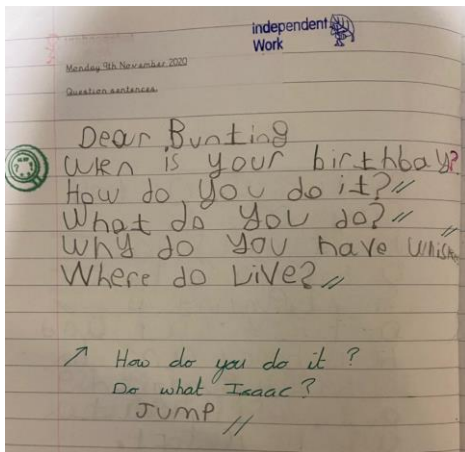 Independent
Work
Monday 9th November 2020
Question sentences
Dear Bunting
Wken is your birthbay?
How do you do it?
What do you do?
Why do you have
Where do Live?
How do you do it?
Do what Isaac?
JUMP